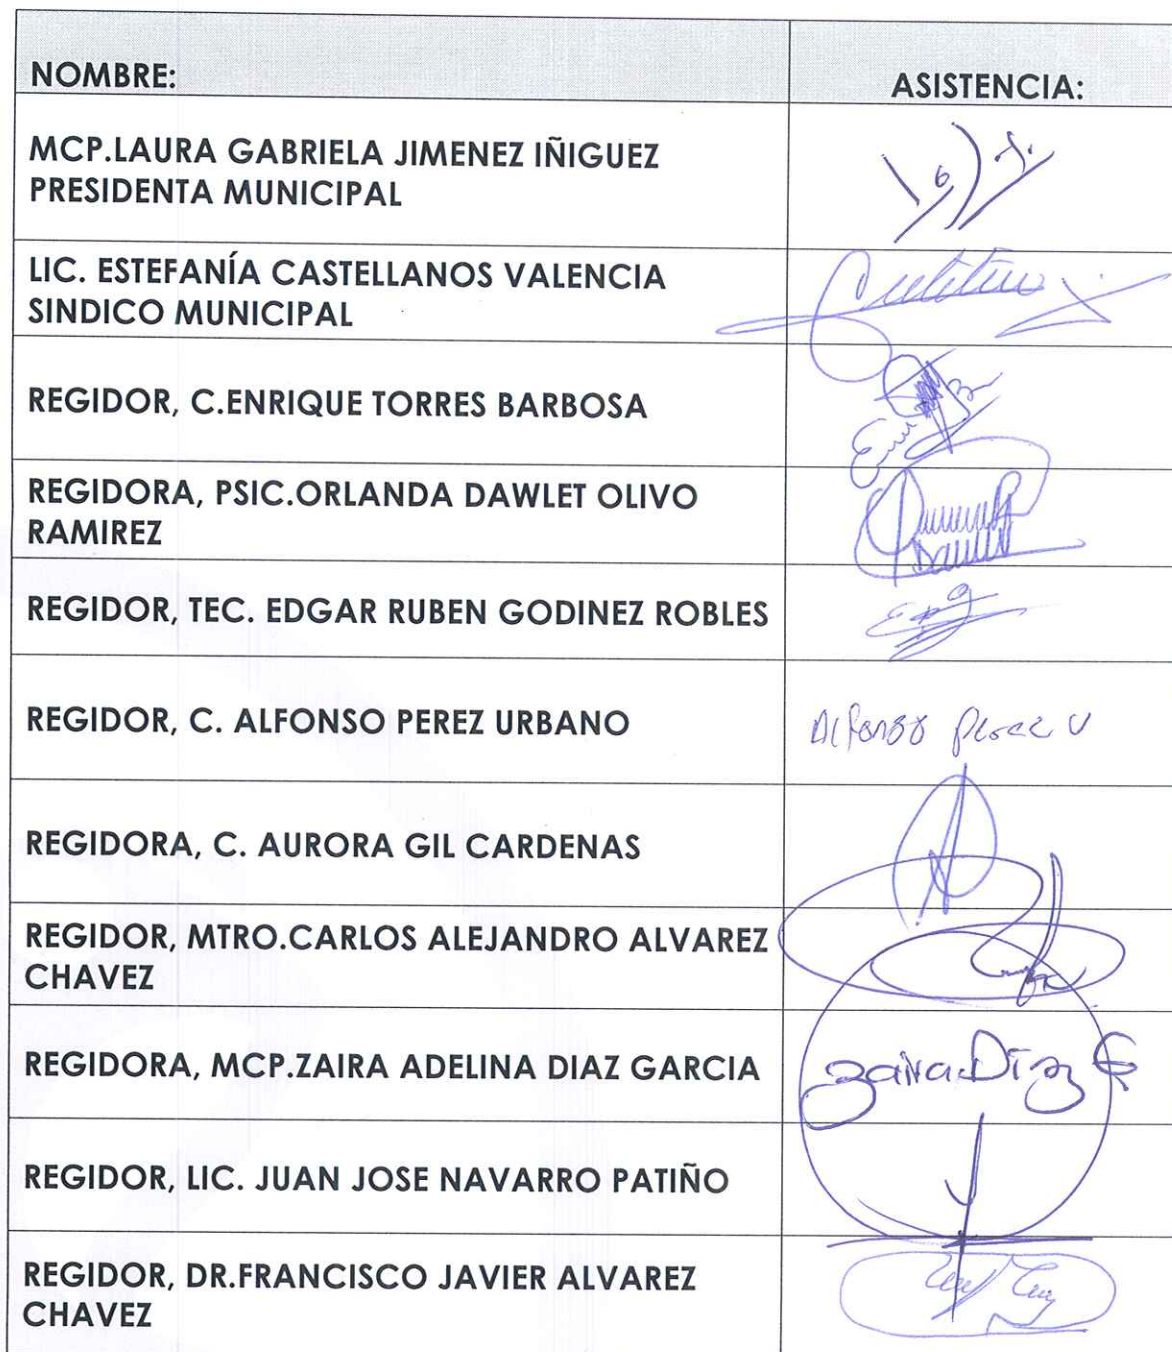 NOMBRE: ASISTENCIA:
MCP.LAURA GABRIELA JIMENEZ IÑIGUEZ
PRESIDENTA MUNICIPAL
LIC. ESTEFANÍA CASTELLANOS VALENCIA
SINDICO MUNICIPAL
REGIDOR, C.ENRIQUE TORRES BARBOSA
REGIDORA, PSIC.ORLANDA DAWLET OLIVO
RAMIREZ
REGIDOR, TEC. EDGAR RUBEN GODINEZ ROBLES
REGIDOR, C. ALFONSO PEREZ URBANO Alfonso Perez U
REGIDORA, C. AURORA GIL CARDENAS
REGIDOR, MTRO.CARLOS ALEJANDRO ALVAREZ
CHAVEZ
REGIDORA, MCP.ZAIRA ADELINA DIAZ GARCIA Zaira Díaz G
REGIDOR, LIC. JUAN JOSE NAVARRO PATIÑO
REGIDOR, DR.FRANCISCO JAVIER ALVAREZ
CHAVEZ